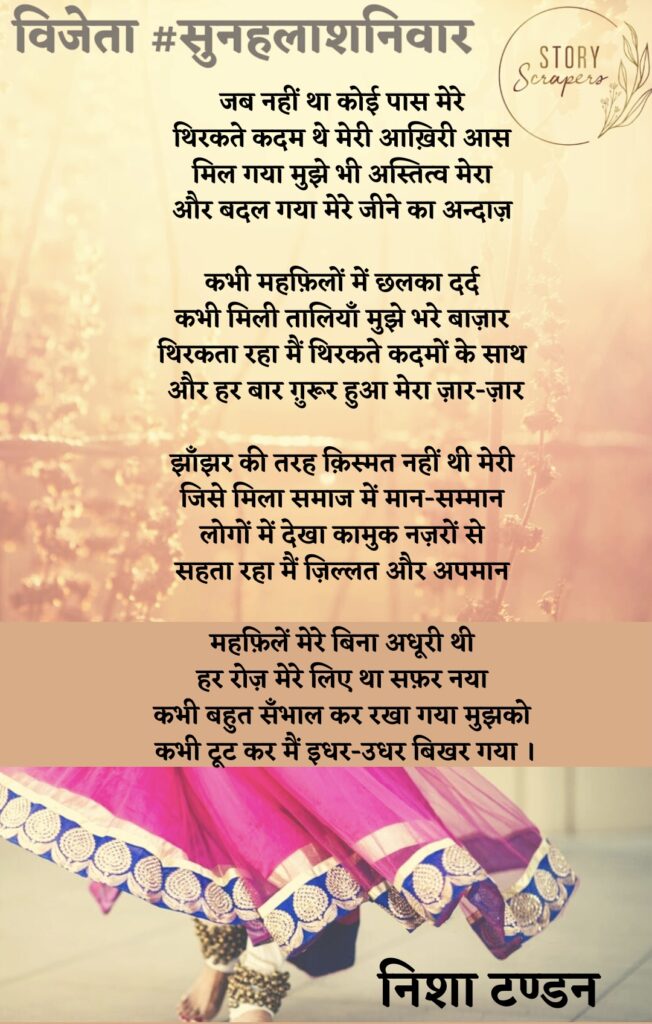 विजेता #सुनहलाशनिवार
STORY
Scrapers
जब नहीं था कोई पास मेरे
थिरकते कदम थे मेरी आख़िरी आस
मिल गया मुझे भी अस्तित्व मेरा
और बदल गया मेरे जीने का अन्दाज़
कभी महफ़िलों में छलका दर्द
कभी मिली तालियाँ मुझे भरे बाज़ार
थिरकता रहा मैं थिरकते कदमों के साथ
और हर बार ग़ुरूर हुआ मेरा ज़ार-ज़ार
झाँझर की तरह क़िस्मत नहीं थी मेरी
जिसे मिला समाज में मान-सम्मान
लोगों में देखा कामुक नज़रों से
सहता रहा मैं ज़िल्लत और अपमान
महफ़िलें मेरे बिना अधूरी थी
हर रोज़ मेरे लिए था सफ़र नया
कभी बहुत सँभाल कर रखा गया मुझको
कभी टूट कर मैं इधर-उधर बिखर गया ।
निशा टण्डन